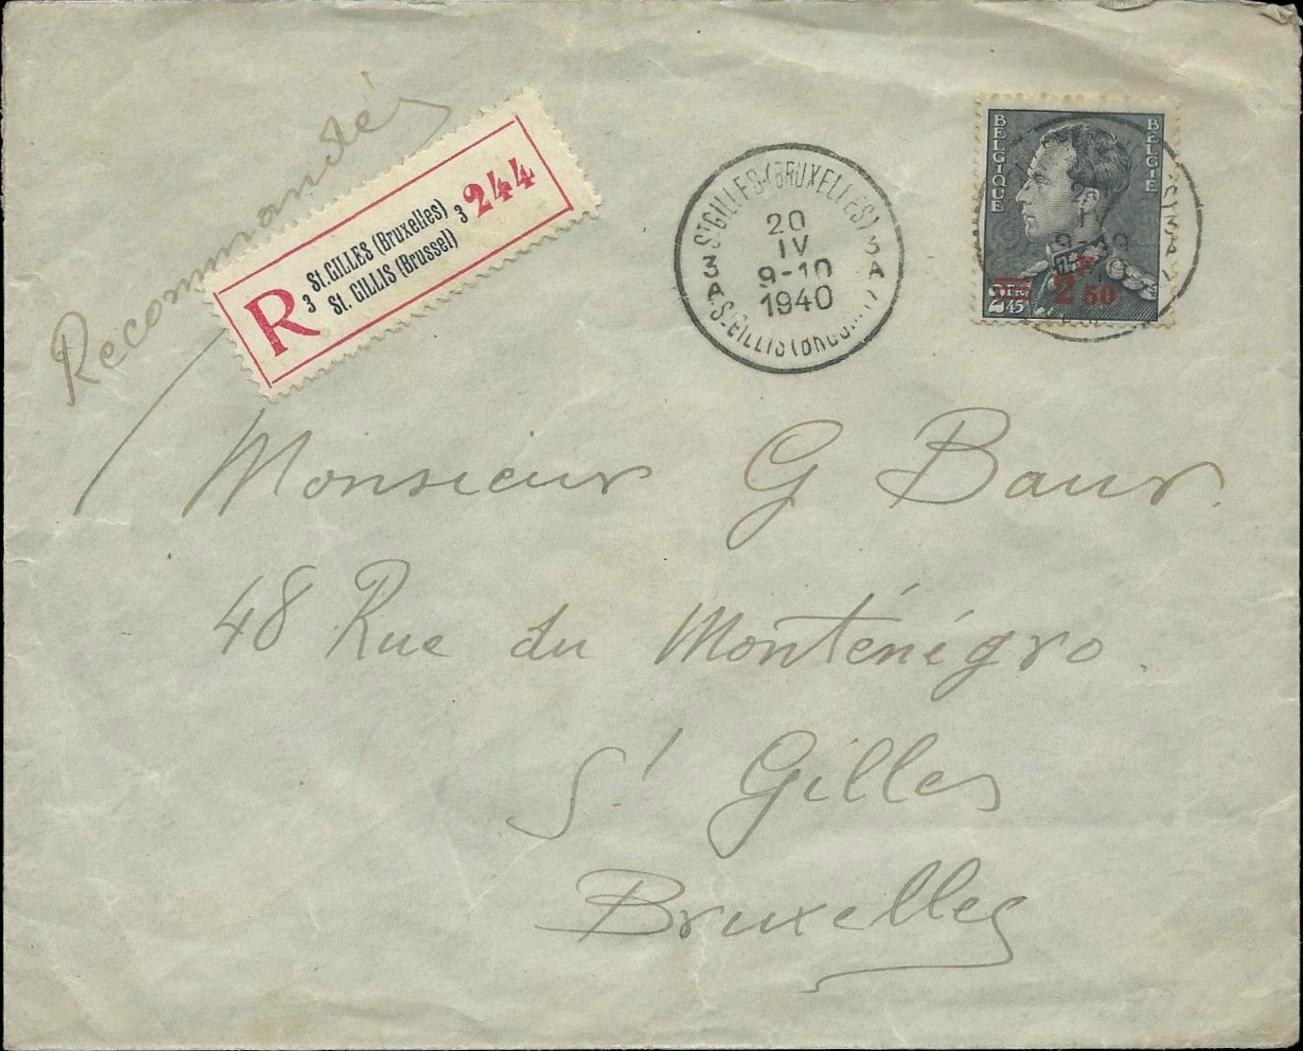 Recommandés
R 3 St. GILLES (Bruxelles) 3 244
St. GILLIS (Brussel)
St GILLES-(BRUXELLES)
3A 3A
20
IV
9-10
1940
St GILLIS
BELGIQUE
BELGIE
2 FR. 45
2 F 50
Monsieur G Baur.
48 Rue du Monténégro.
St Gilles
Bruxelles